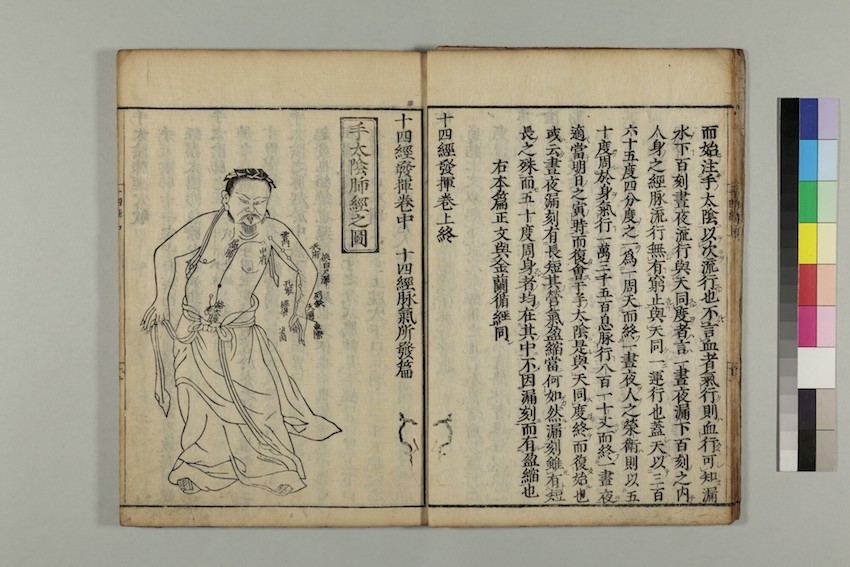 而始注手太陰以次流行也不言血者氣行則血行可知漏
水下百刻晝夜流行與天同度者言一晝夜漏下百刻之内
人身之經脉流行無有窮止與天同一運行也蓋天以三百
六十五度四分度之一為一周天而終一晝夜人之榮衛則以五
十度周於身氣行一萬三千五百息脉行八百一十丈而終一晝夜
適當明日之寅時而復會于手太陰是與天同度終而復始也
或云晝夜漏刻有長短其營氣盈縮當何如然漏刻雖有短
長之殊而五十度周身者均在其中不因漏刻而有盈縮也
右本篇正文與金蘭循經同
十四經發揮卷上終
十四經發揮卷中 十四經脉氣所發篇
手太陰肺經之圖
雲門
中府
天府
俠白
尺澤
孔最
列缺
經渠
太淵
魚際